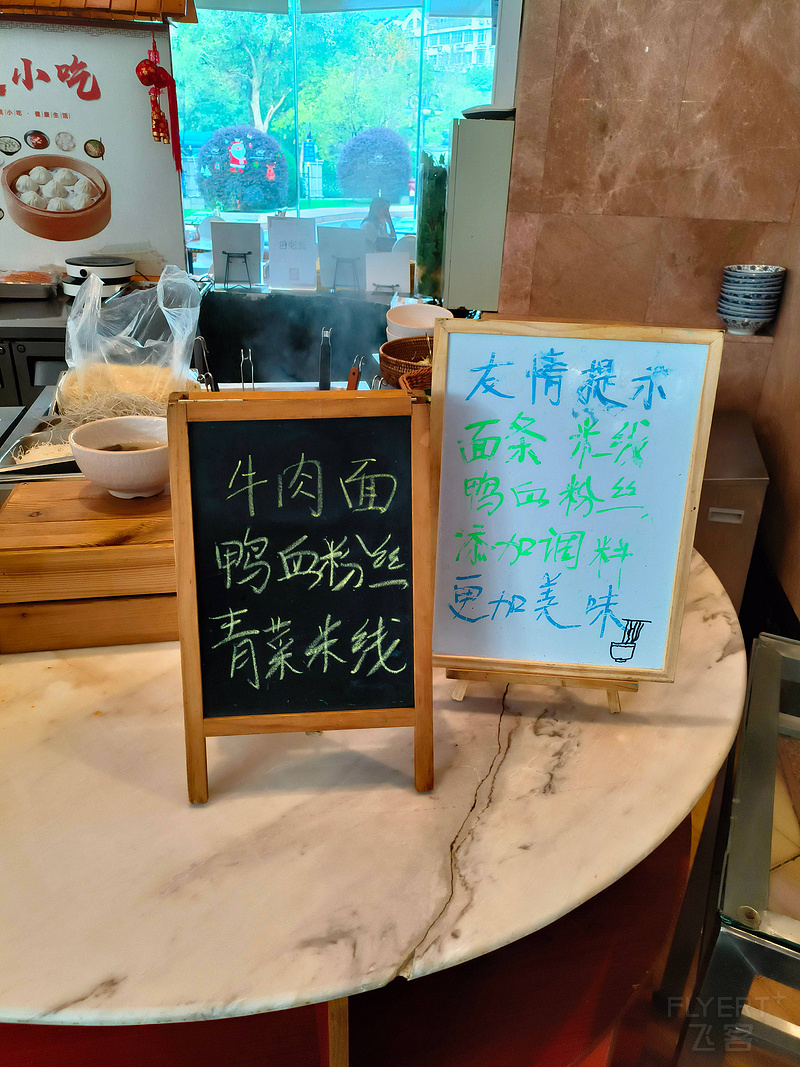 小吃
牛肉面
鸭血粉丝
青菜米线
友情提示
面条 米线
鸭血粉丝,
添加调料
更加美味
FLYERT+
飞客